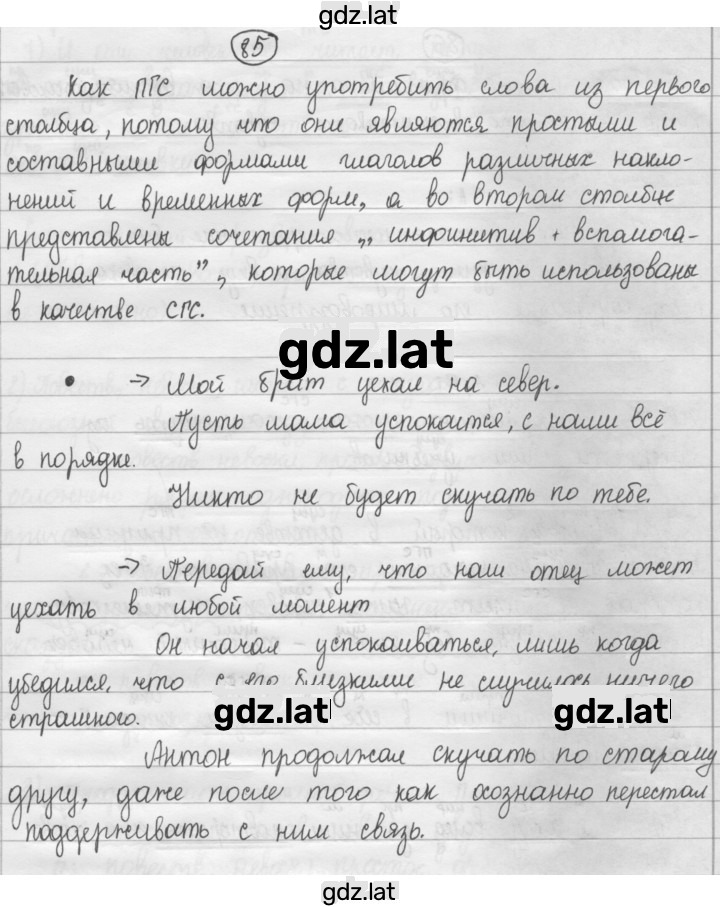 gdz.lat
85
Как ПГС можно употребить слова из первого
столбца, потому что они являются простыми и
составными формами глаголов различных накло-
нений и временных форм, а во втором столбце
представлены сочетания „инфинитив + вспомога-
тельная часть”, которые могут быть использованы
в качестве СГС.
gdz.lat
• → Мой брат уехал на север.
Пусть мама успокоится, с нами всё
в порядке.
Никто не будет скучать по тебе.
→ Передай ему, что наш отец может
уехать в любой момент
Он начал - успокаиваться, лишь когда
убедился, что с его близкими не случилось ничего
gdz.lat gdz.lat
страшного.
Антон продолжал скучать по старому
другу, даже после того как осознанно перестал
поддерживать с ним связь.
gdz.lat